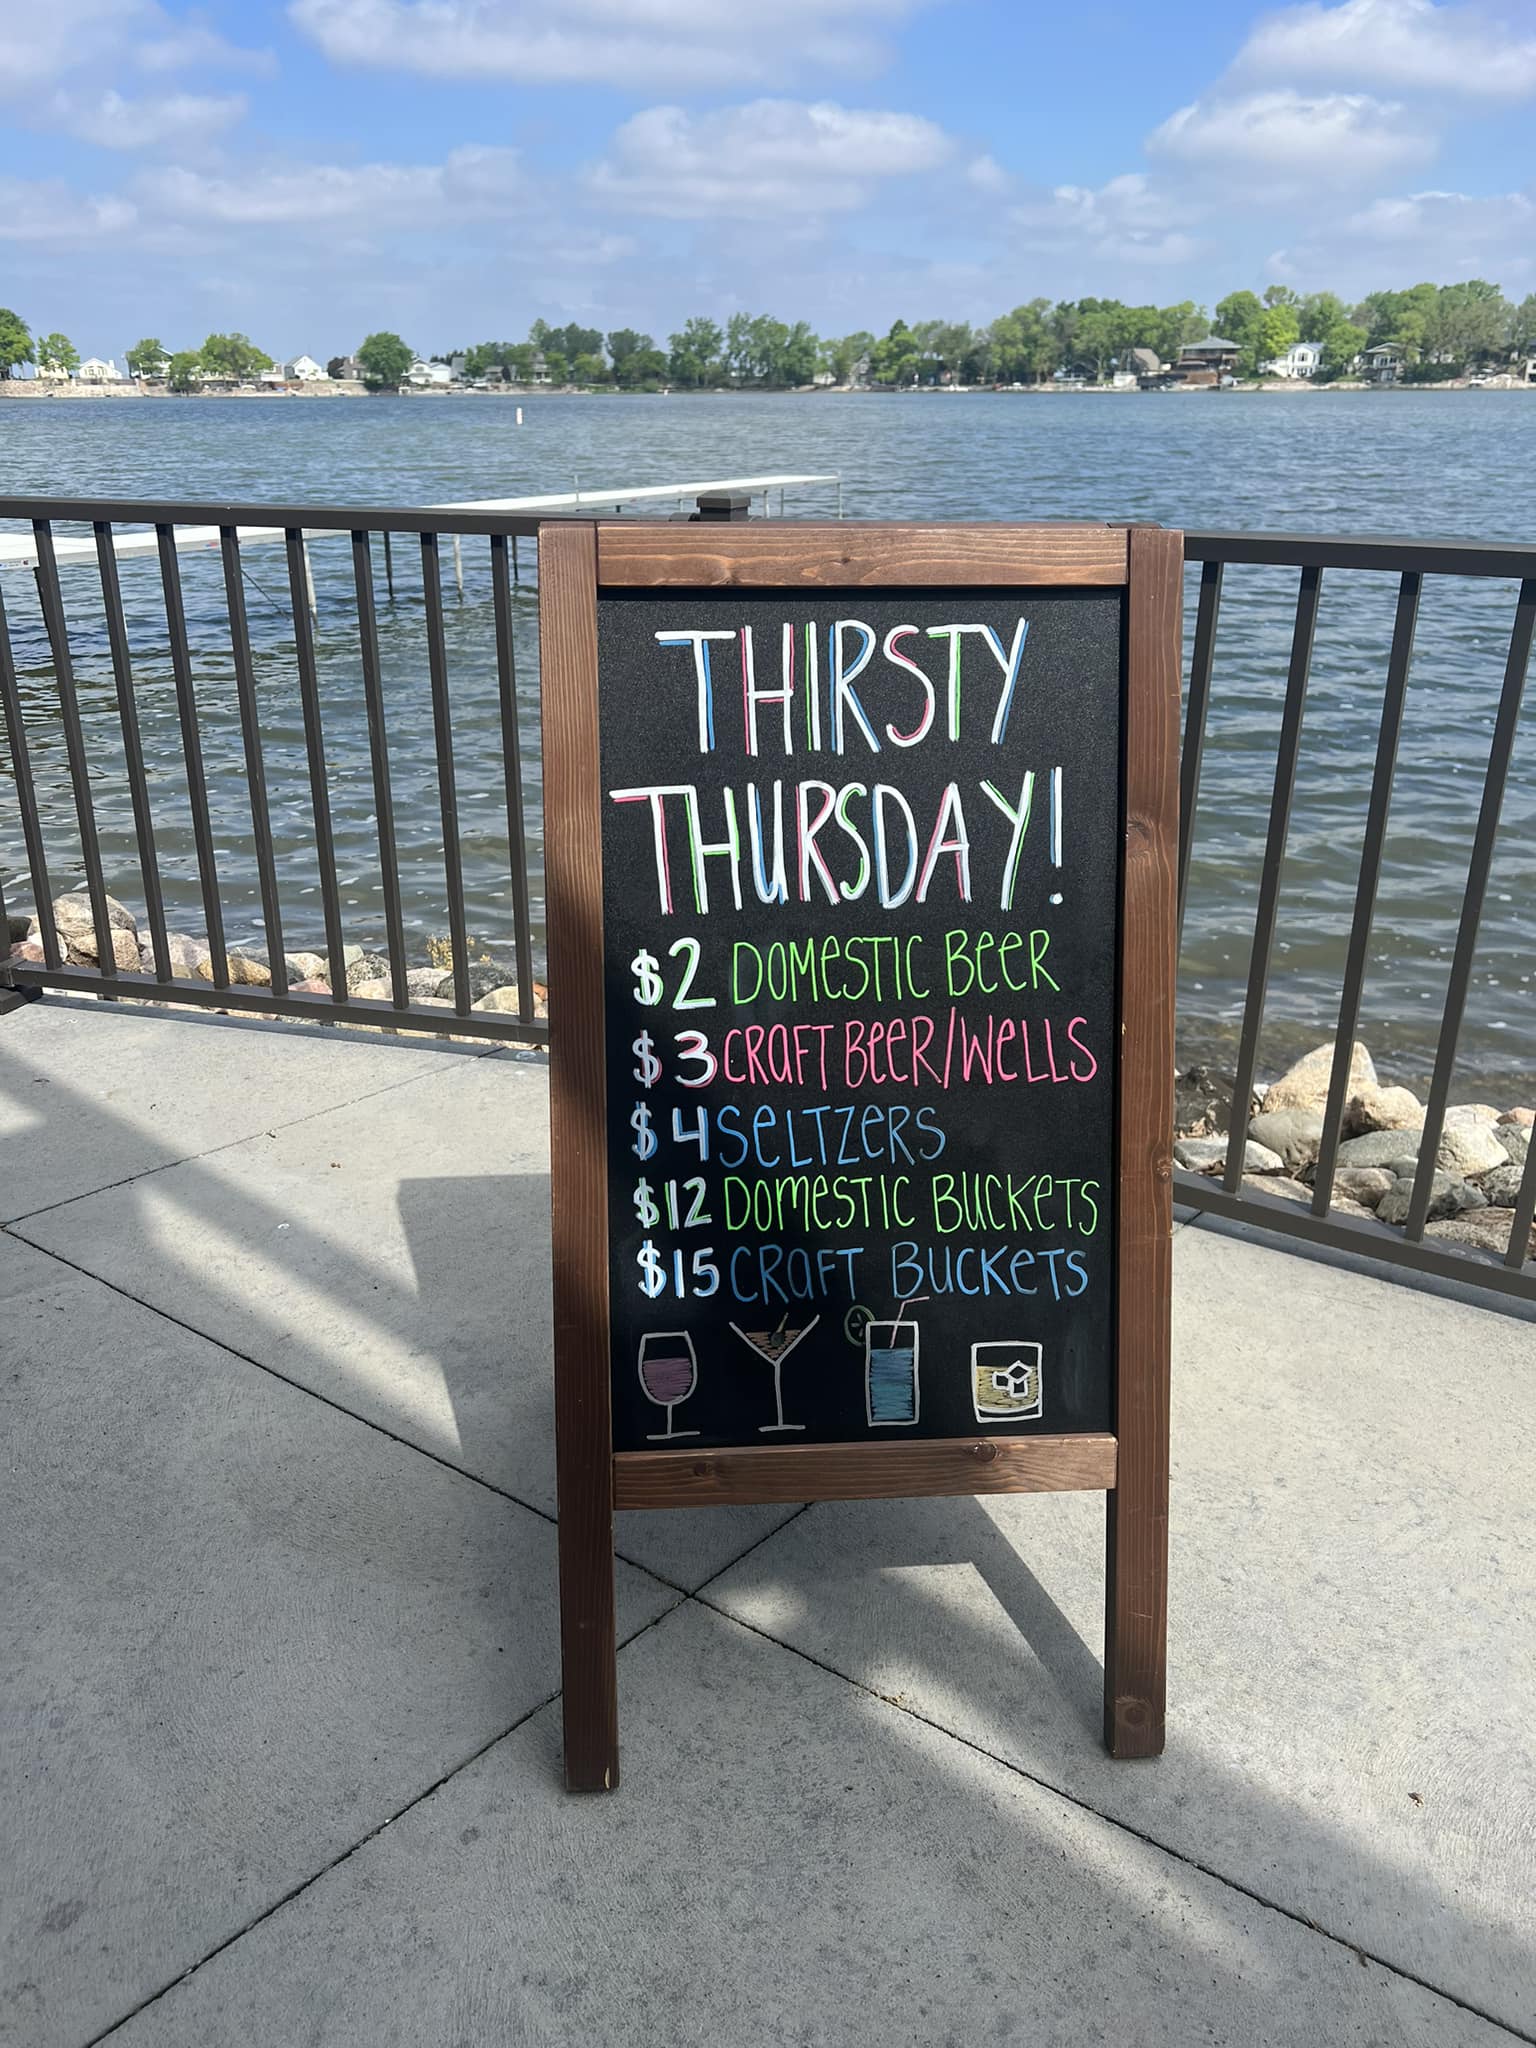 THIRSTY
THURSDAY!
$2 DOMESTIC BEER
$3 CRAFT BEER/WELLS
$4 SELTZERS
$12 DOMESTIC BUCKETS
$15 CRAFT BUCKETS